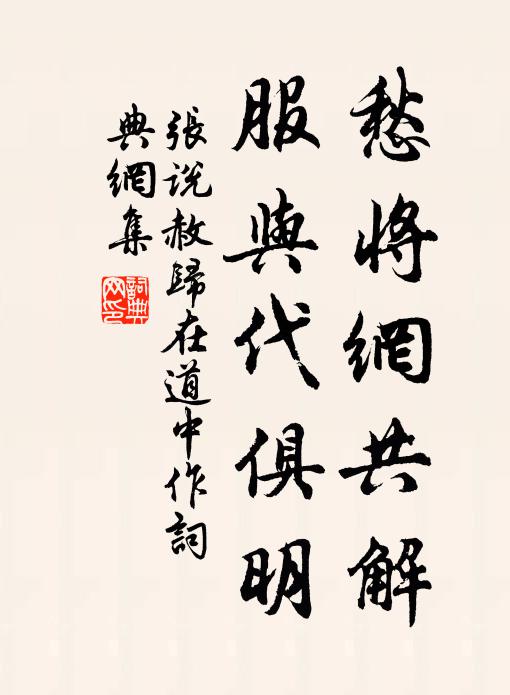 愁將網共解
服與代俱明
張說赦歸在道中作詞
典網集
詞典網印